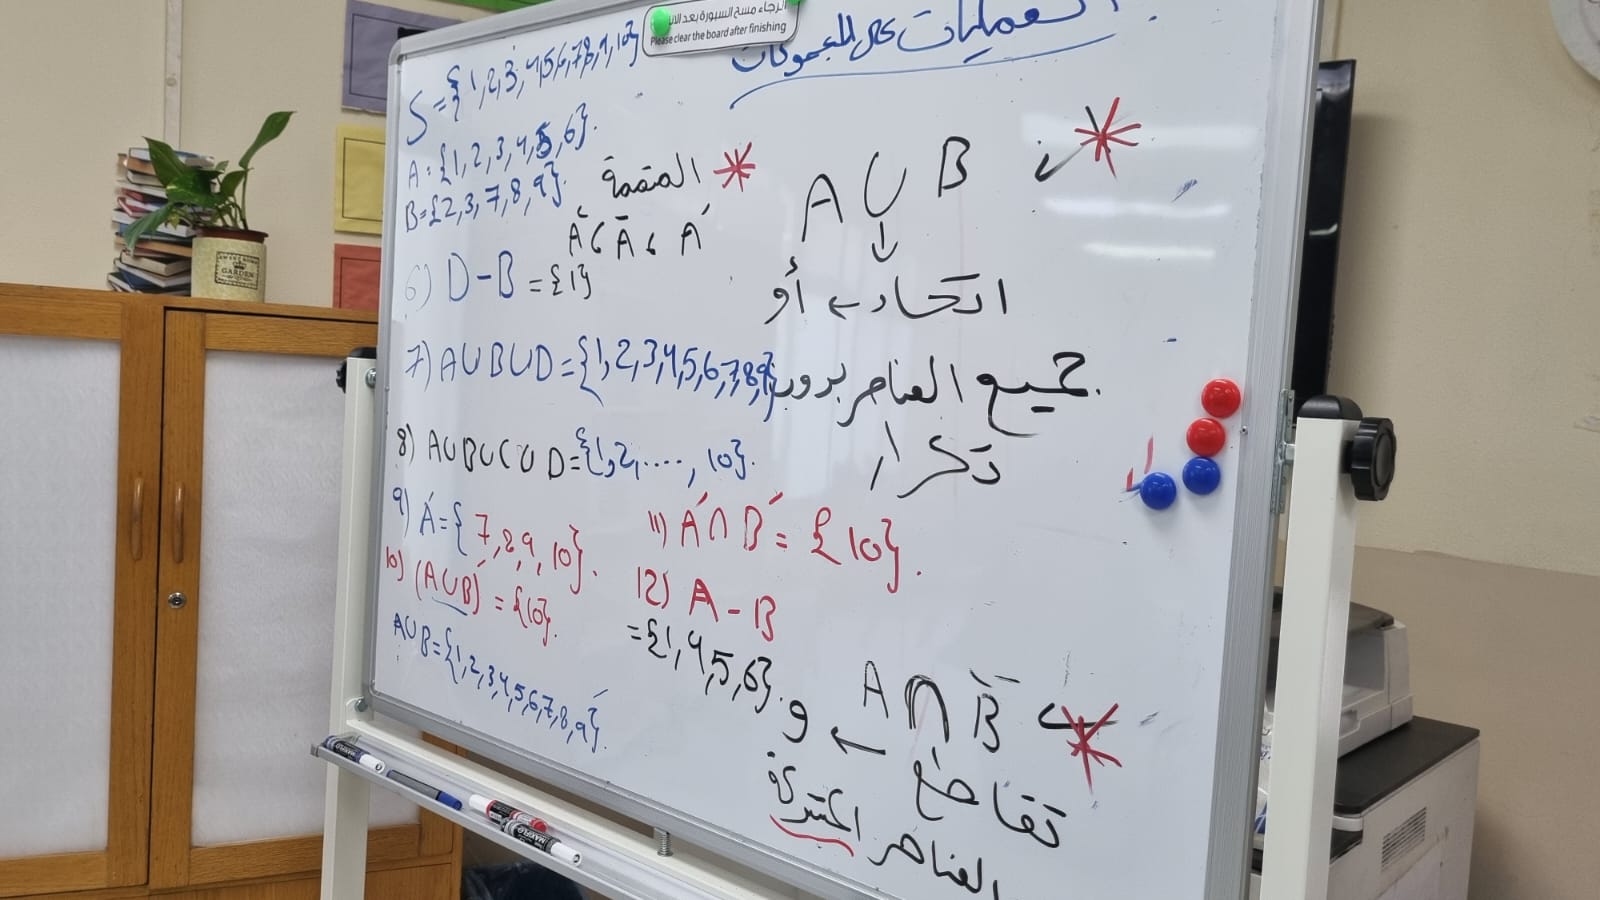 الرجاء مسح السبورة بعد الانتهاء
Please clear the board after finishing
العمليات على المجموعات
S={1,2,3,4,5,6,7,8,9,10}
A={1,2,3,4,5,6}.
B={2,3,7,8,9}.
المتممة
Á , Ā , A'
6) D-B={1}
7) AUBUD={1,2,3,4,5,6,7,8,9}
8) AUBUCUD={1,2,....,10}.
9) A'={7,8,9,10}.
10) (AUB)'={10}.
AUB={1,2,3,4,5,6,7,8,9}.
11) A'∩B'={10}.
12) A-B
={1,4,5,6}.
A U B
↓
اتحاد ← أو
جميع العناصر بدون
تكرار
A ∩ B
تقاطع ← و
العناصر المشتركة
GARDEN